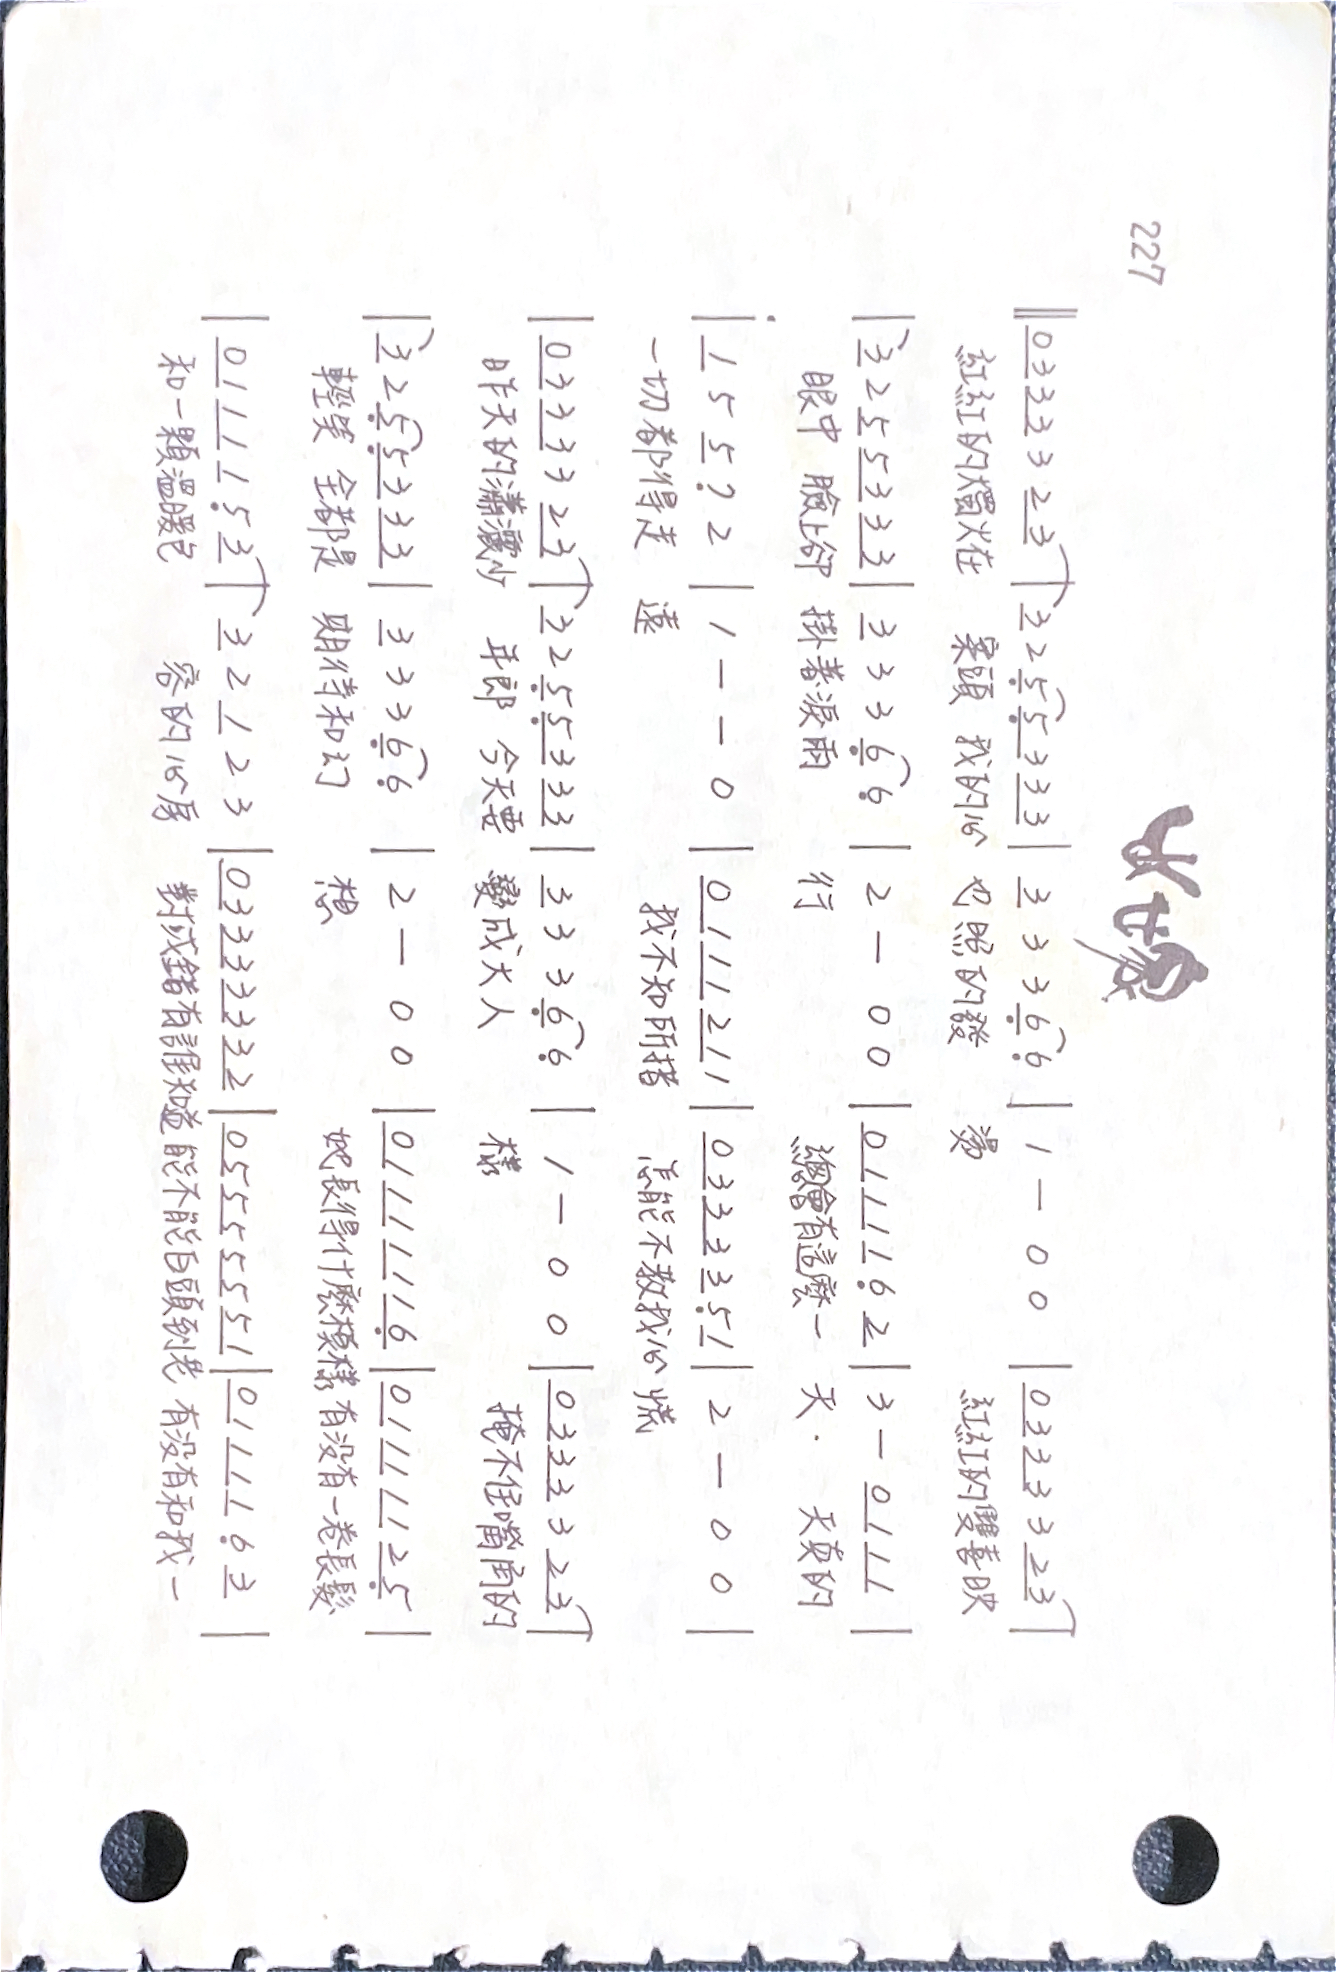 227
出嫁
0 3 3 3 3 2 3 | 3 2 5 5 3 3 3 | 3 3 3 6 6 | 1 — 0 0 | 0 3 3 3 3 2 3 |
紅紅的燭火在 案頭 我的心 也照的發 燙 紅紅的雙喜映
| 3 2 5 5 3 3 3 | 3 3 3 6 6 | 2 — 0 0 | 0 1 1 1 1 6 2 | 3 — 0 1 1 1 |
眼中 臉上卻 掛著淚兩 行 總會有這麼一 天. 天真的
| 1 5 5 7 2 | 1 — — 0 | 0 1 1 1 2 1 1 | 0 3 3 3 3 5 1 | 2 — 0 0 |
一切都得走 遠 我不知所措 怎能不教我心 慌
| 0 3 3 3 3 2 3 | 3 2 5 5 3 3 3 | 3 3 3 6 6 | 1 — 0 0 | 0 3 3 3 3 2 3 |
昨天的瀟灑少 年郎 今天要 變成大人 樣 掩不住嘴角的
| 3 2 5 5 3 3 3 | 3 3 3 6 6 | 2 — 0 0 | 0 1 1 1 1 1 1 6 | 0 1 1 1 1 1 2 5 |
輕笑 全都是 期待和幻 想 她長得什麼模樣 有没有一卷長髮
| 0 1 1 1 1 5 3 | 3 2 1 2 3 | 0 3 3 3 3 3 3 2 | 0 5 5 5 5 5 5 1 | 0 1 1 1 1 6 3 |
和一顆溫暖包 容的心房 對或錯有誰知道 能不能白頭到老 有没有和我一